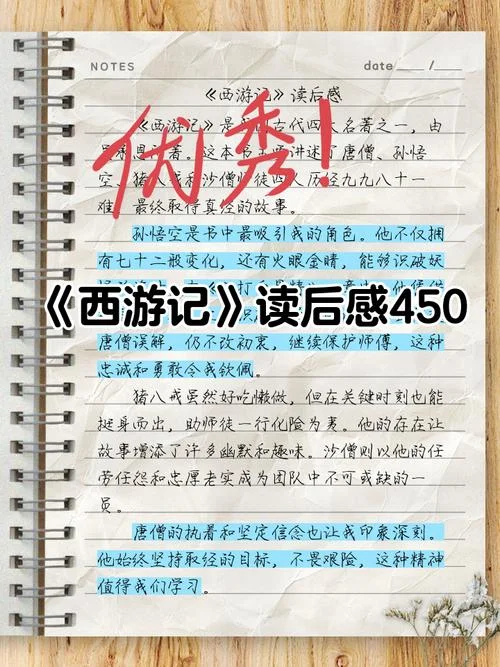 NOTES
date ___ / ___
《西游记》读后感
《西游记》是 古代四 名著之一，由
著。这本书 讲述了唐僧、孙悟
空、猪八戒和沙僧师徒四人历经九九八十一
难，最终取得真经的故事。
优秀！
孙悟空是书中最吸引我的角色。他不仅拥
有七十二般变化，还有火眼金睛，能够识破妖
《西游记》读后感450
唐僧误解，仍不改初衷，继续保护师傅，这种
忠诚和勇敢令我钦佩。
猪八戒虽然好吃懒做，但在关键时刻也能
挺身而出，助师徒一行化险为夷。他的存在让
故事增添了许多幽默和趣味。沙僧则以他的任
劳任怨和忠厚老实成为团队中不可或缺的一
员。
唐僧的执着和坚定信念也让我印象深刻。
他始终坚持取经的目标，不畏艰险，这种精神
值得我们学习。